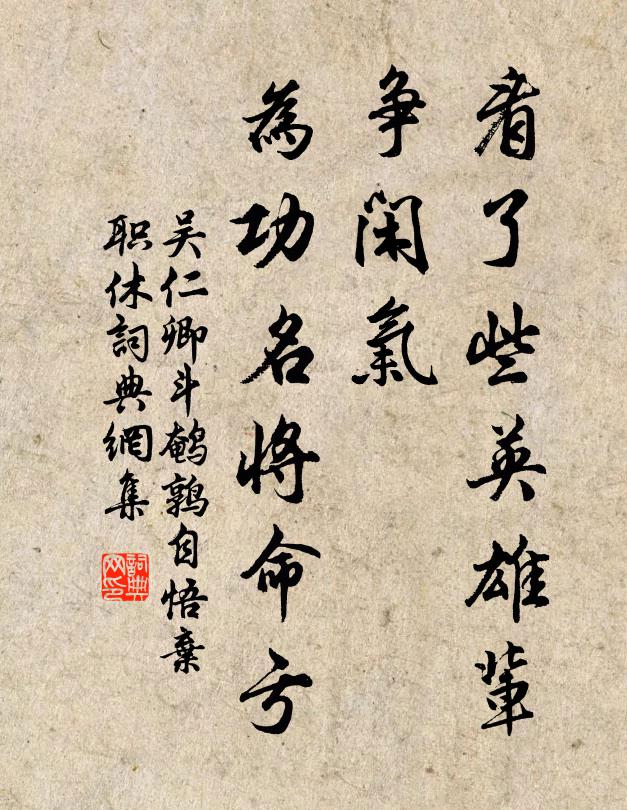 看了些英雄輩
争閑氣
為功名將命亏
吴仁卿斗鹌鹑自悟棄
职休詞典網集
詞典
网印